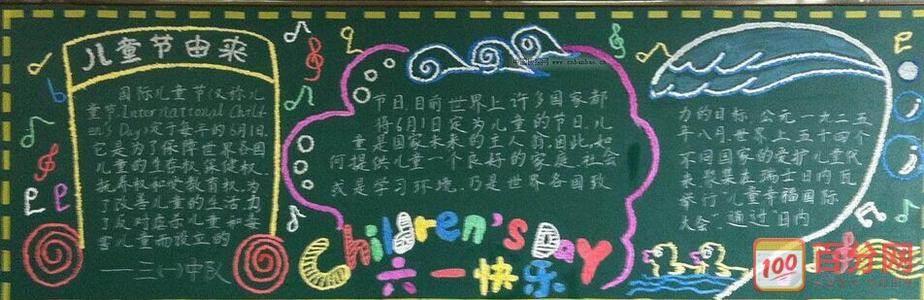 儿童节由来
国际儿童节(又称儿
童节,International Child
en's Day)定于每年的6月1日.
它是为了保障世界各国
儿童的生存权、保健权.
抚养权和受教育权.为
了改善儿童的生活.为
了反对虐杀儿童和毒
害儿童而设立的
——三(一)中队
节日.目前世界上许多国家都
将6月1日定为儿童的节日.儿
童是国家未来的主人翁.因此,如
何提供儿童一个良好的家庭.社会
或是学习环境.乃是世界各国致
力的目标.公元一九二五
年八月.世界上五十四个
不同国家的爱护儿童代
表.聚集在瑞士日内瓦
举行"儿童幸福国际
大会".通过"日内
Children's Day
六一快乐
100
百分网